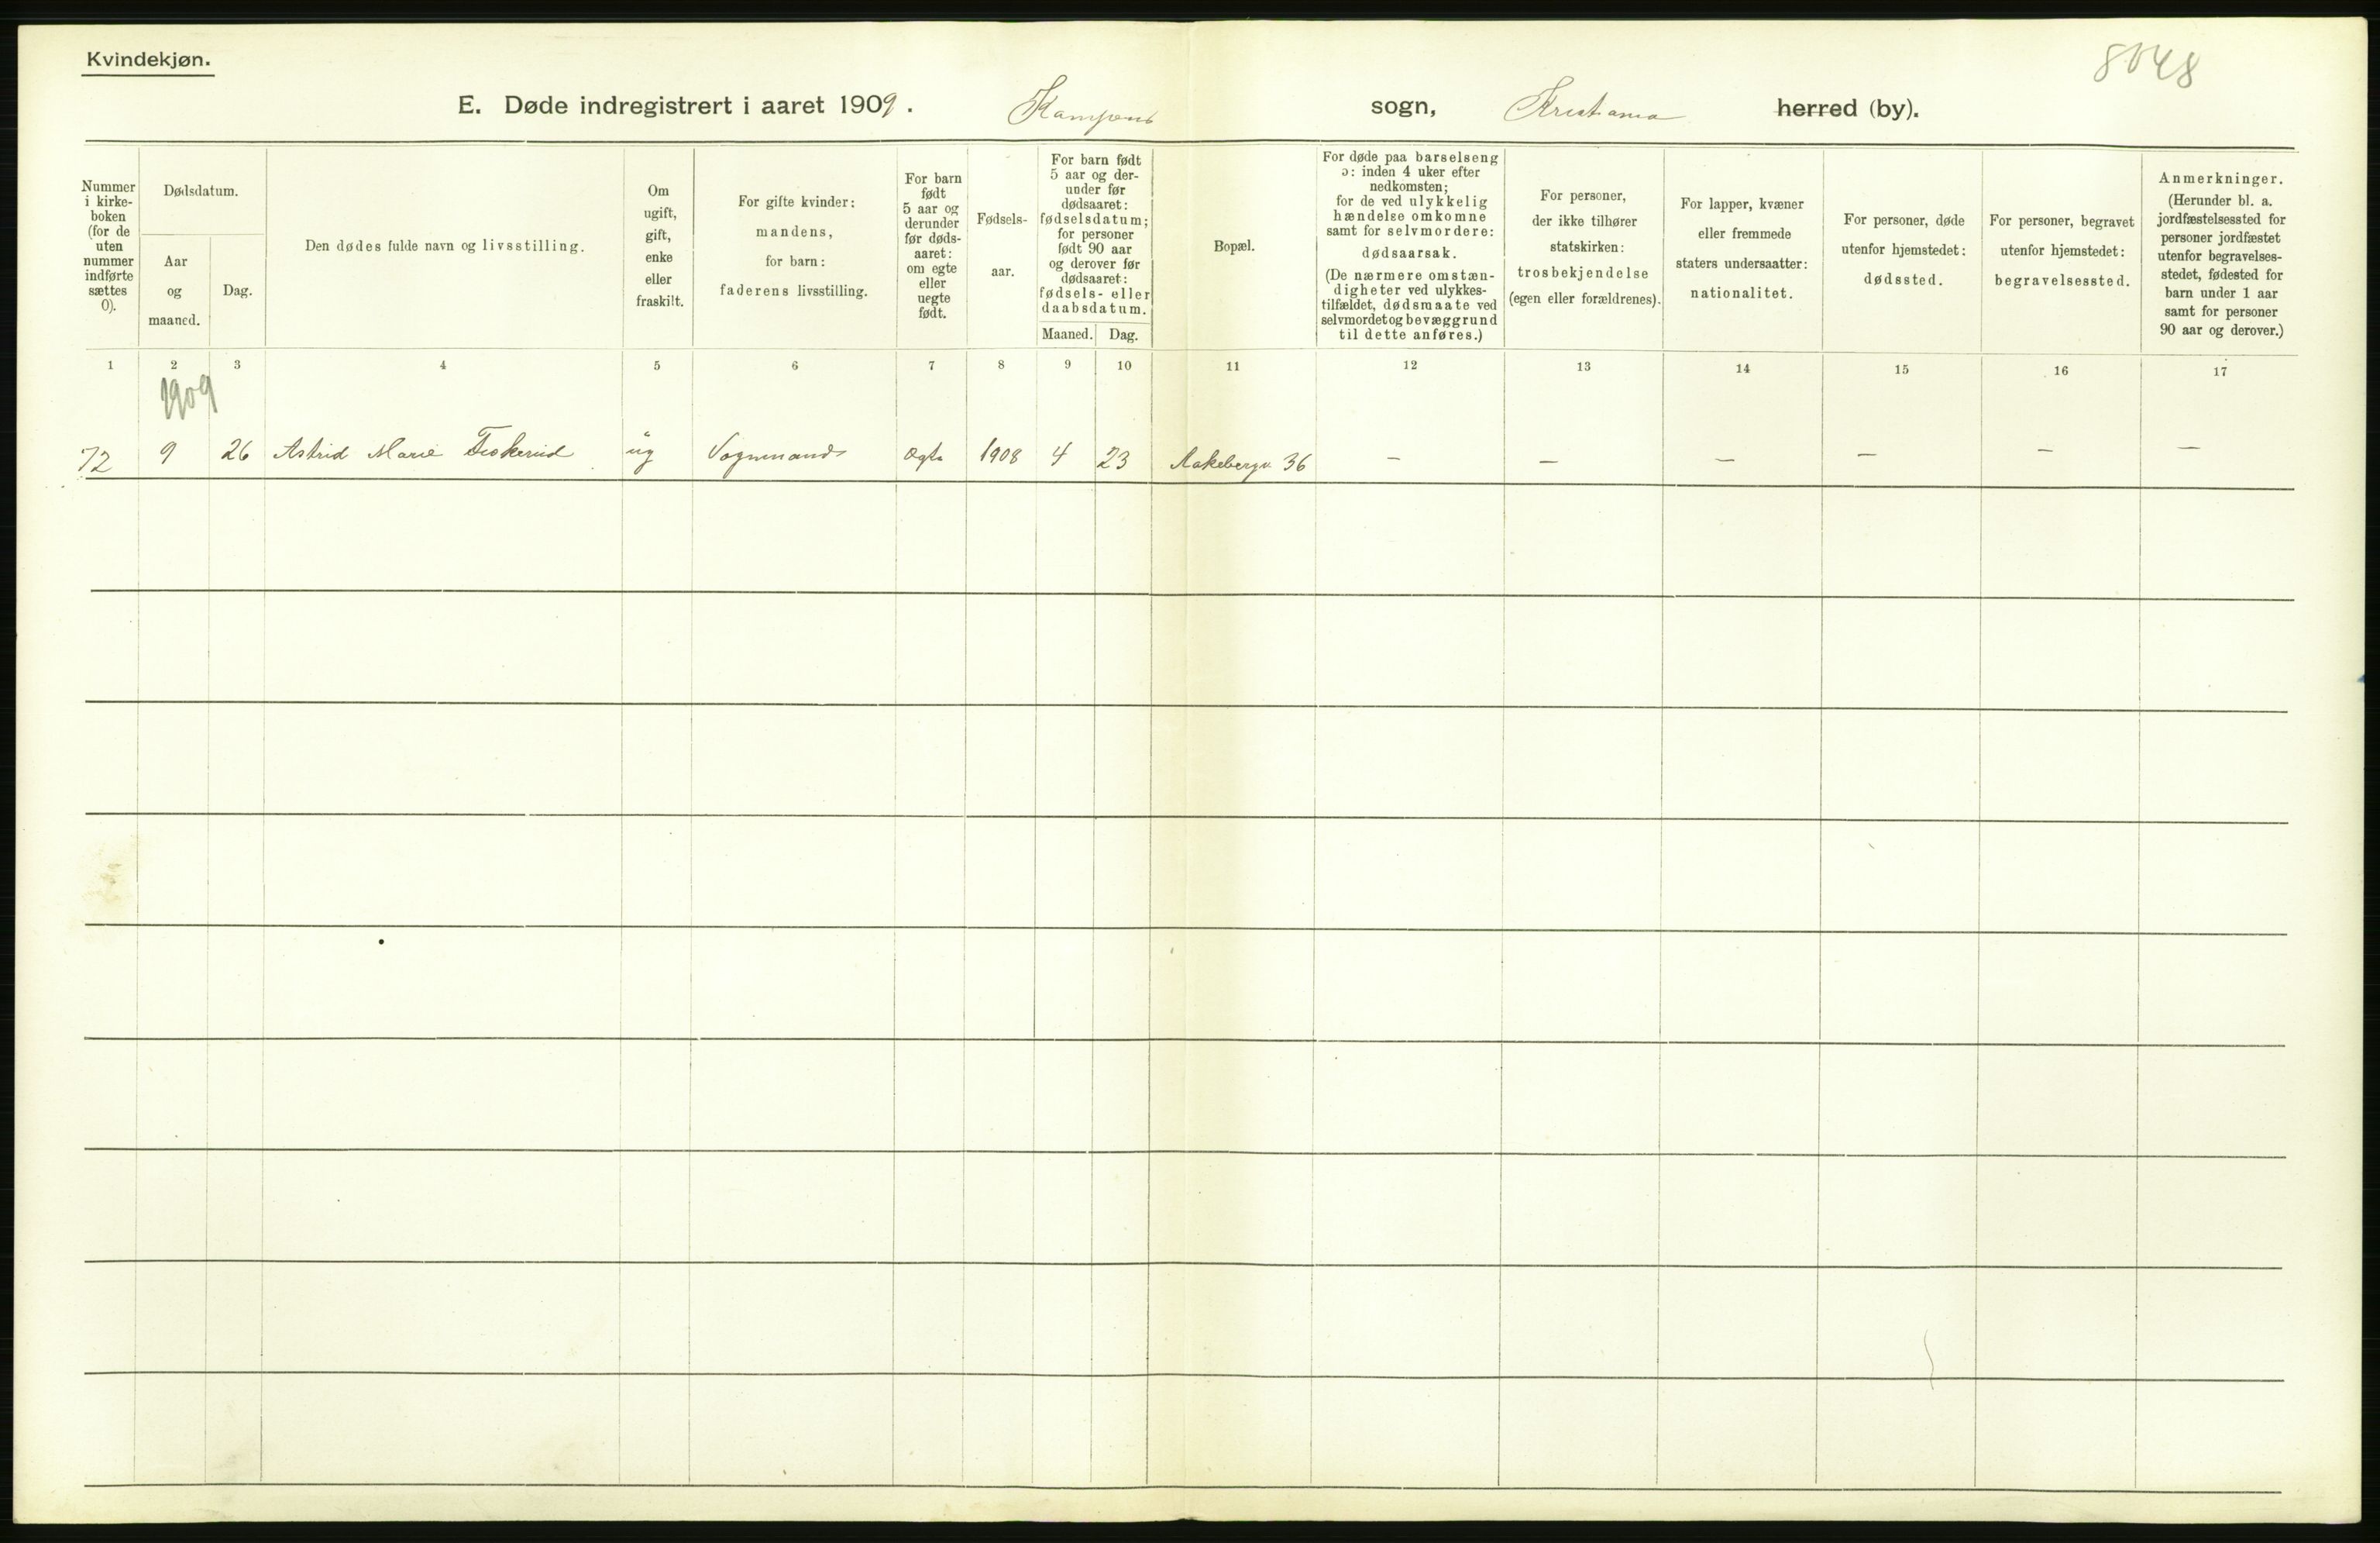 Kvindekjøn.
8048
E. Døde indregistrert i aaret 1909. Kampens sogn, Kristiania herred (by).
Nummer
i kirke-
boken
(for de
uten
nummer
indførte
sættes
0).
Dødsdatum.
Aar
og
maaned.
Dag.
Den dødes fulde navn og livsstilling.
Om
ugift,
gift,
enke
eller
fraskilt.
For gifte kvinder:
mandens,
for barn:
faderens livsstilling.
For barn
født
5 aar og
derunder
før døds-
aaret:
om egte
eller
uegte
født.
Fødsels-
aar.
For barn født
5 aar og der-
under før
dødsaaret:
fødselsdatum;
for personer
født 90 aar
og derover før
dødsaaret:
fødsels- eller
daabsdatum.
Maaned. Dag.
Bopæl.
For døde paa barselseng
ɔ: inden 4 uker efter
nedkomsten;
for de ved ulykkelig
hændelse omkomne
samt for selvmordere:
dødsaarsak.
(De nærmere omstæn-
digheter ved ulykkes-
tilfældet, dødsmaate ved
selvmordet og bevæggrund
til dette anføres.)
For personer,
der ikke tilhører
statskirken:
trosbekjendelse
(egen eller forældrenes).
For lapper, kvæner
eller fremmede
staters undersaatter:
nationalitet.
For personer, døde
utenfor hjemstedet:
dødssted.
For personer, begravet
utenfor hjemstedet:
begravelsessted.
Anmerkninger.
(Herunder bl. a.
jordfæstelsessted for
personer jordfæstet
utenfor begravelses-
stedet, fødested for
barn under 1 aar
samt for personer
90 aar og derover.)
1 2 3 4 5 6 7 8 9 10 11 12 13 14 15 16 17
1909
72 9 26 Astrid Marie Fiskerud ug Vognmands Ægte 1908 4 23 Aakebergv 36 — — — — — —